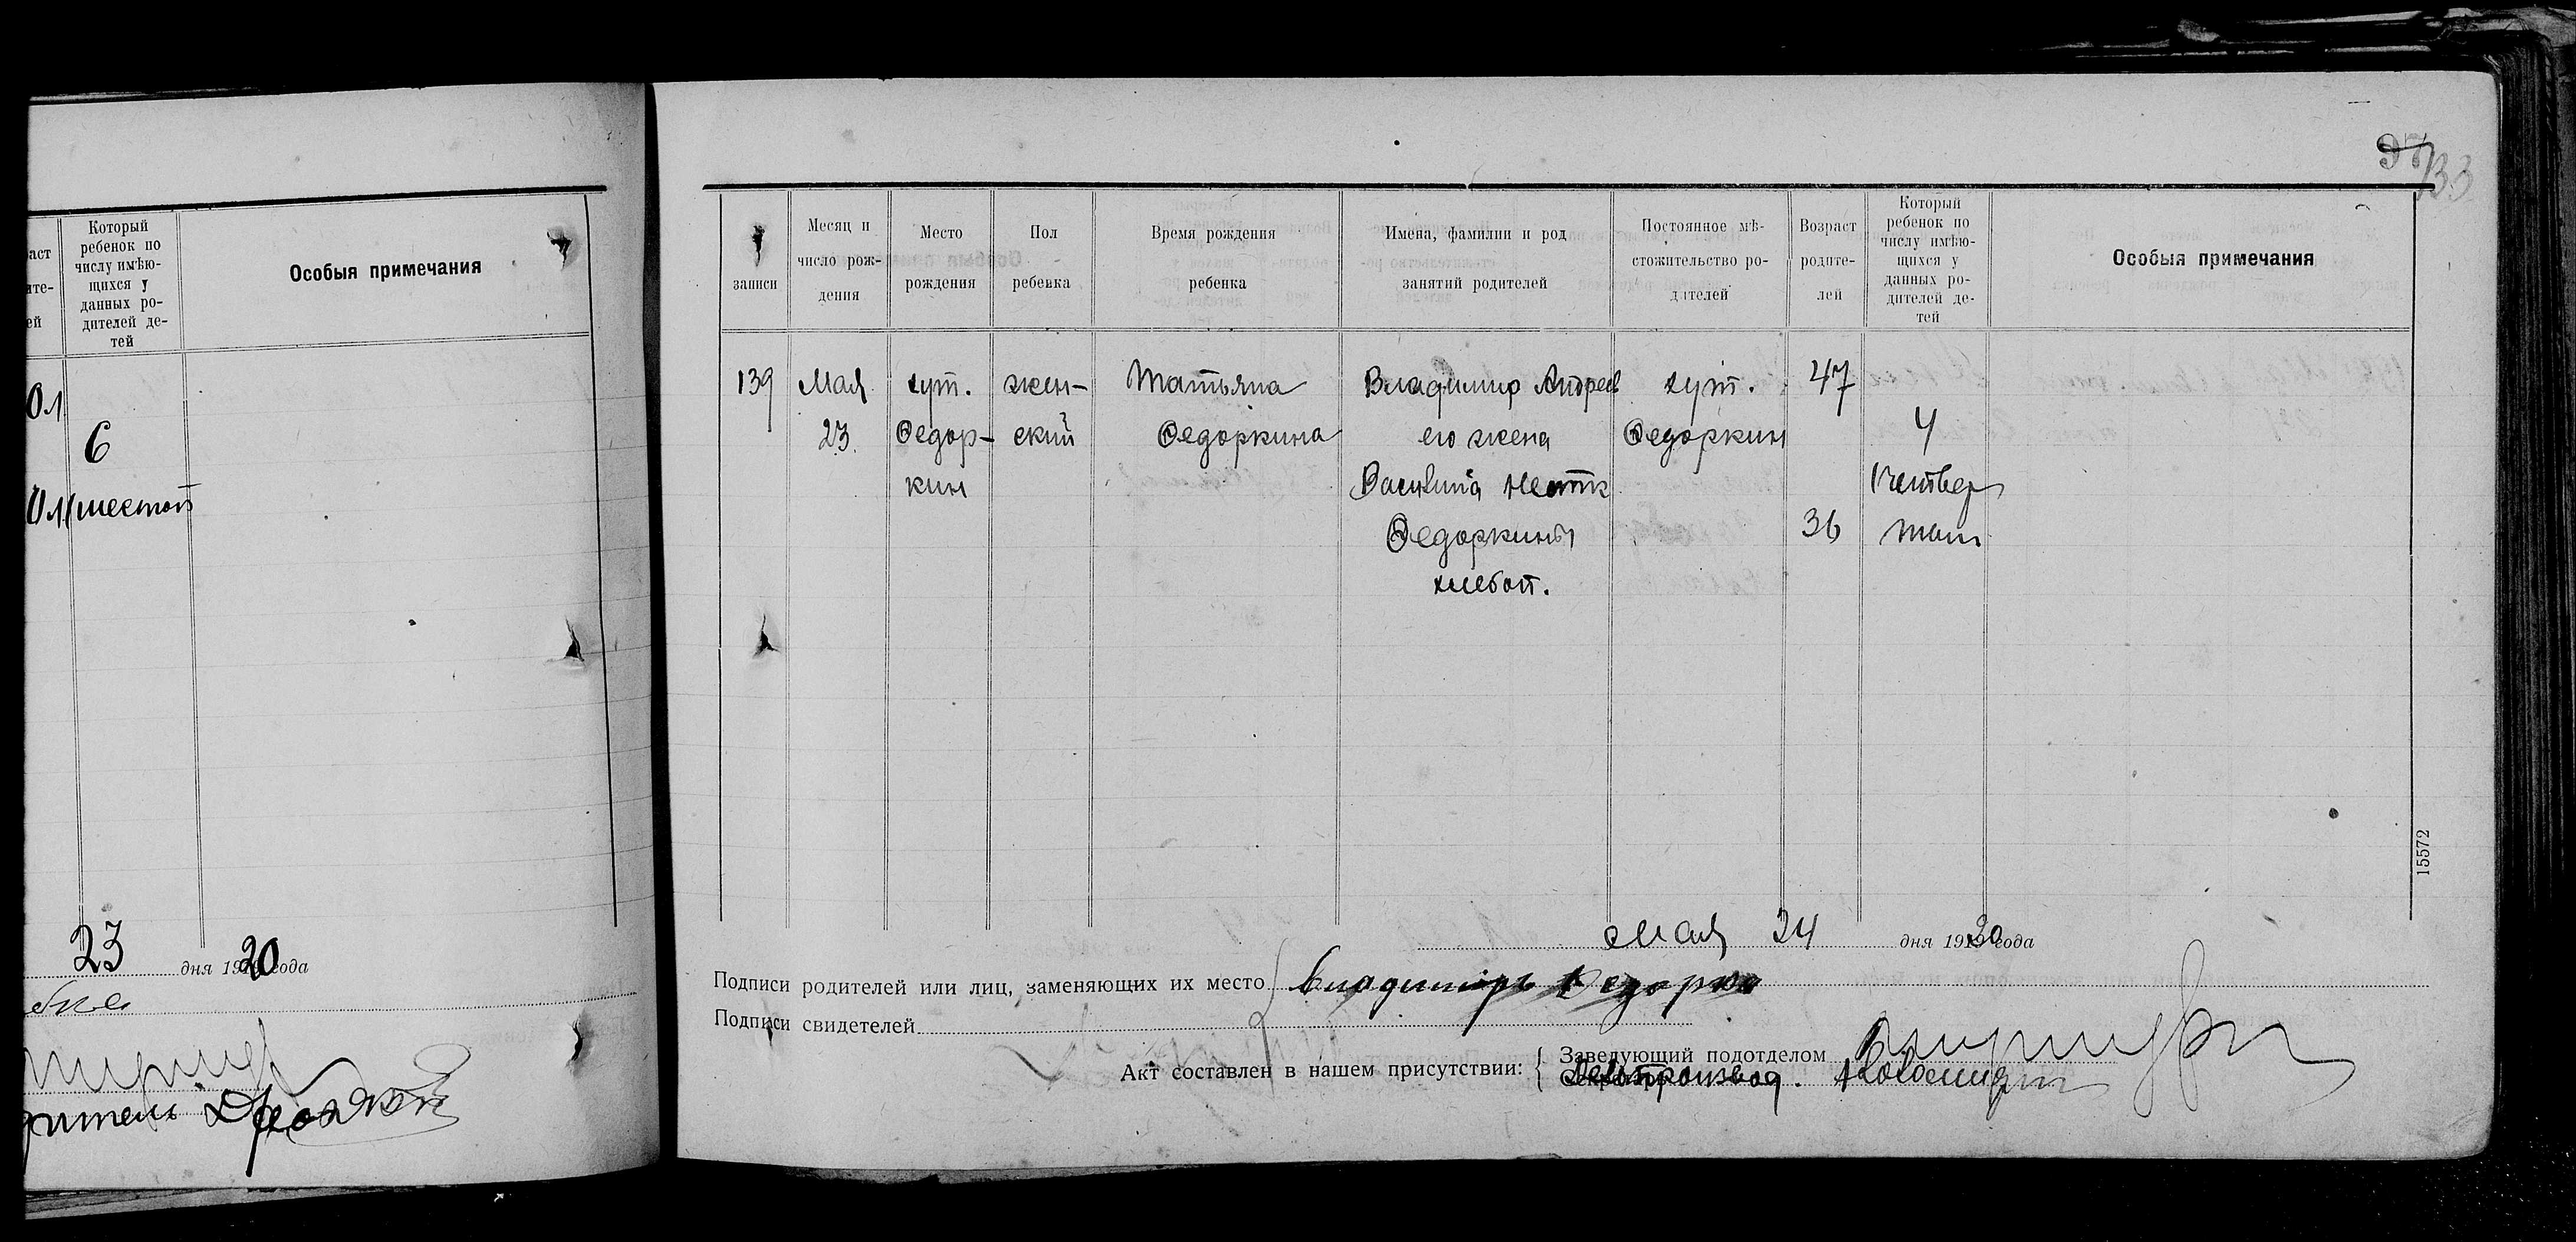 Который
ребенок по
числу имѣю-
щихся у
данных ро-
дителей де-
тей
Особыя примечания
6
шестой
23 дня 1920 года
133
записи
Месяц и
число рож-
дения
Место
рождения
Пол
ребенка
Время рождения
ребенка
Имена, фамилии и род
занятий родителей
Постоянное мѣ-
стожительство ро-
дителей
Возраст
родите-
лей
Который
ребенок по
числу имѣю-
щихся у
данных ро-
дителей де-
тей
Особыя примечания
139
Мая
23
хут.
Федор-
кин
жен-
ский
Татьяна
Федоркина
Владимир Андреев
его жена
Федоркины
хлебоп.
хут.
Федоркин
47
36
4
15572
Мая 24 дня 1920 года
Подписи родителей или лиц, заменяющих их место Владимиръ
Подписи свидетелей
Акт составлен в нашем присутствии:
Заведующий подотделом
Делопроизвод.